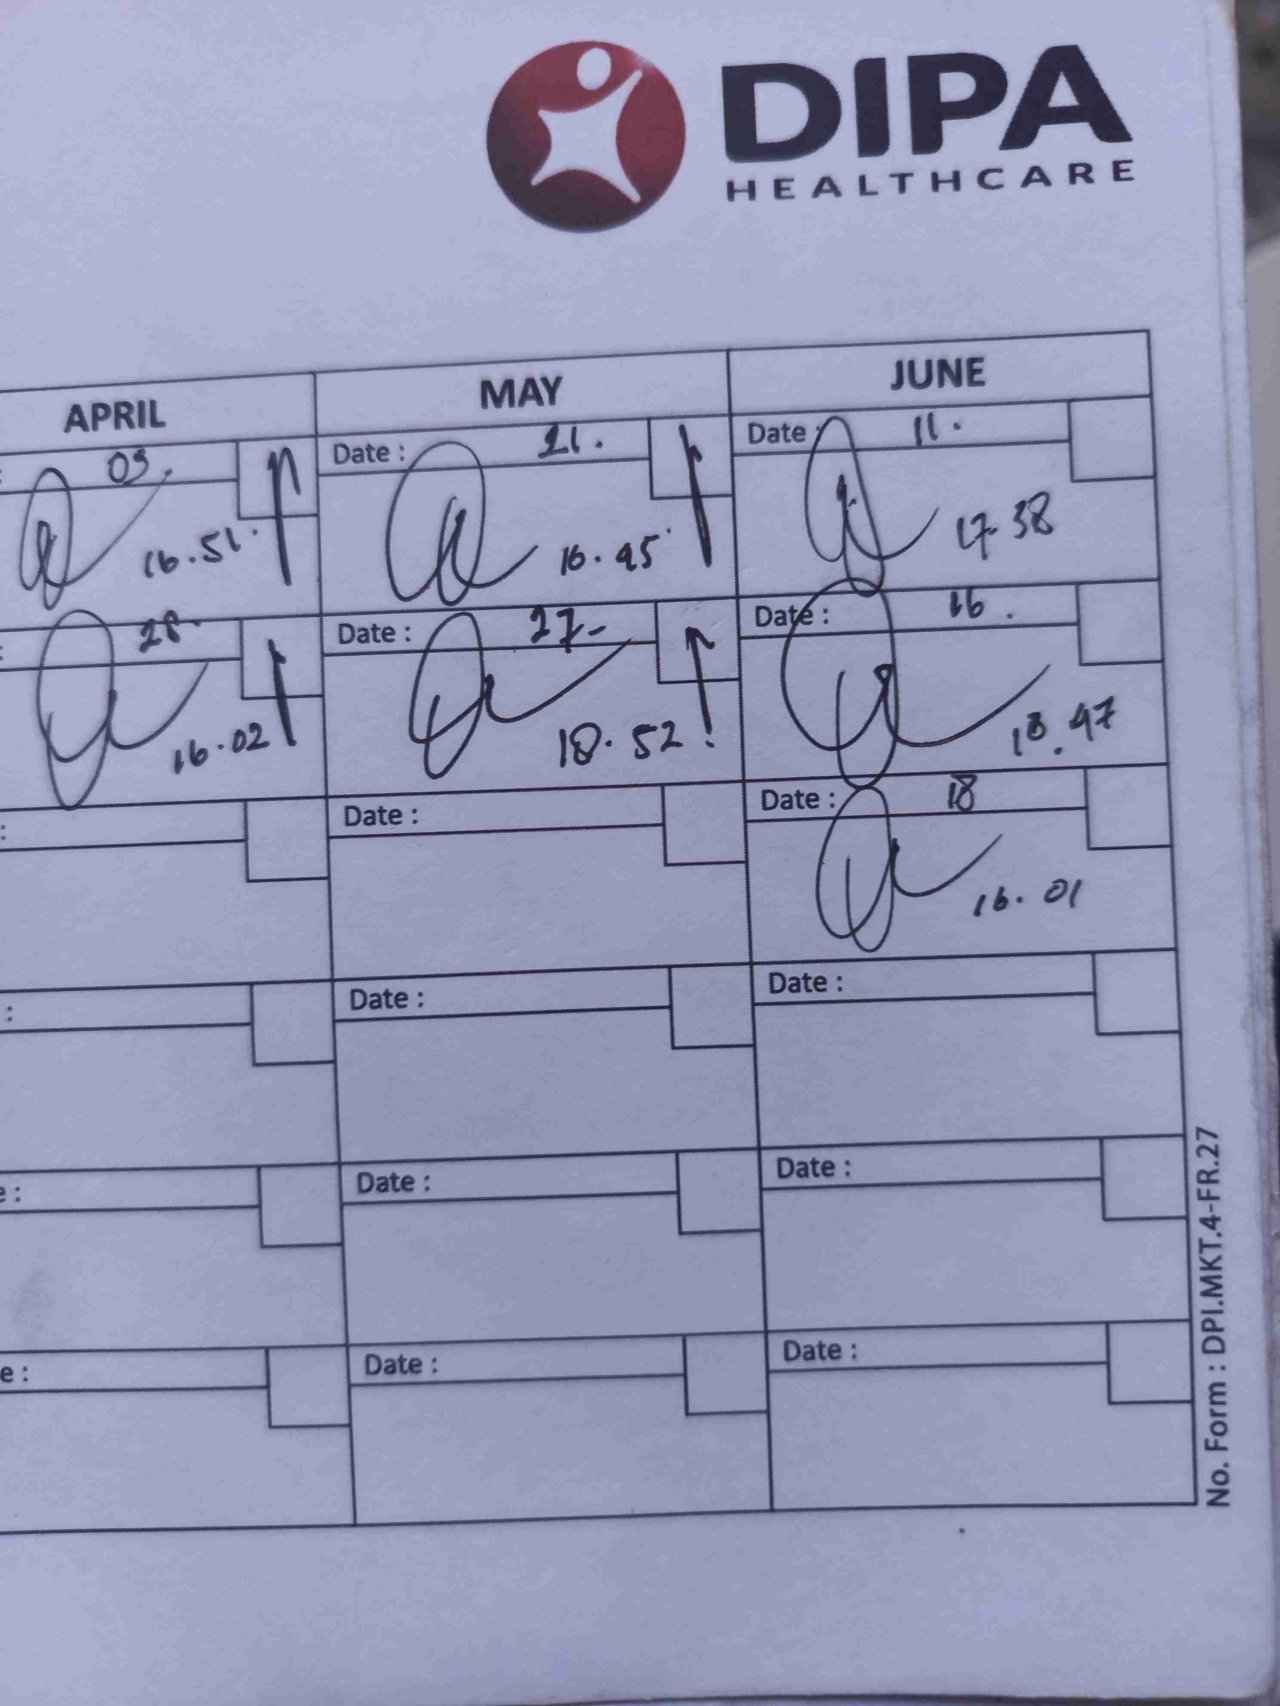 DIPA
HEALTHCARE
APRIL MAY JUNE
: 03. Date : 21. Date : 11.
16.51. 16.45 17.38
: 28. Date : 27- Date : 16.
16.02 18.52 18.47
: Date : Date : 18
16.01
: Date : Date :
e : Date : Date :
e : Date : Date :
No. Form : DPI.MKT.4-FR.27